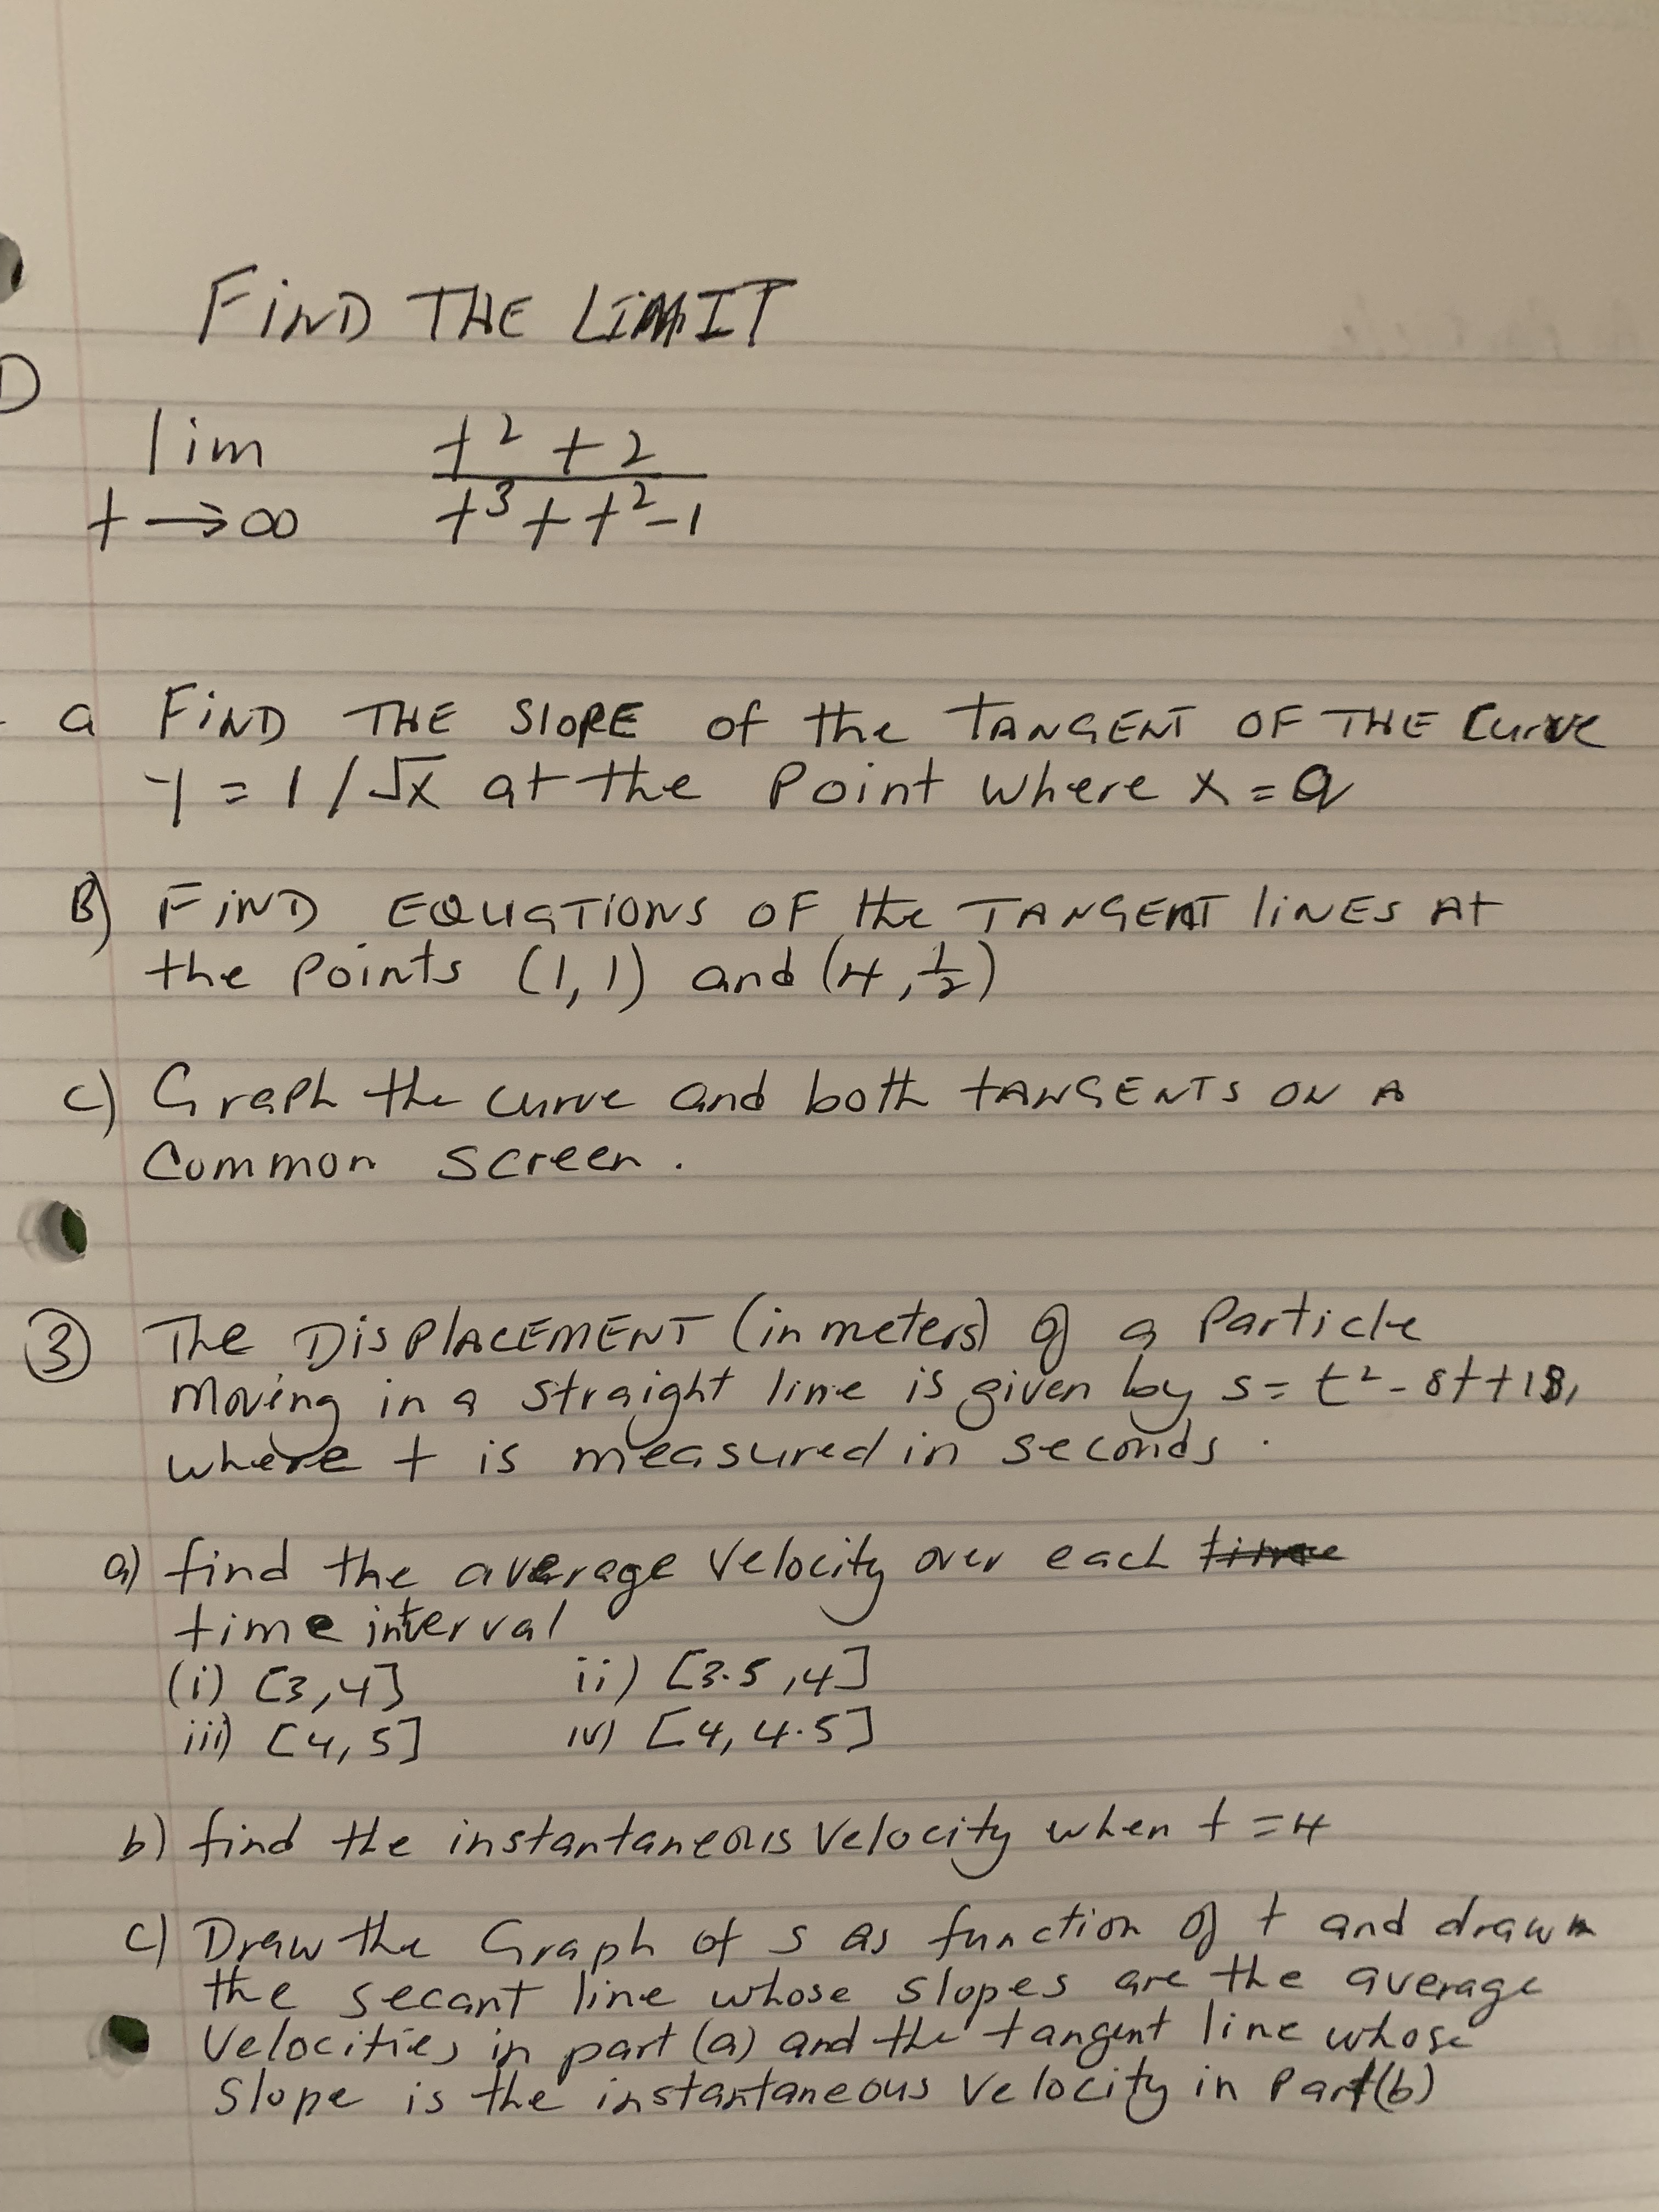 FIND THE LIMIT
D
lim t² + 2
t → ∞ t³ + t² - 1
a FIND THE SLOPE of the TANGENT OF THE Curve
y = 1 / √x at the Point where x = a
B) FIND EQUATIONS OF the TANGENT LINES At
the points (1, 1) and (4, 1/2)
c) Graph the curve and both tANGENTS ON A
Common screen.
③ The DisPlACEMENT (in meters) of a Particle
Moving in a straight line is given by s = t² - 8t + 18,
where t is measured in seconds.
a) find the average velocity over each time
time interval
(i) [3, 4] ii) [3.5, 4]
iii) [4, 5] iv) [4, 4.5]
b) find the instantaneous velocity when t = 4
c) Draw the Graph of s as function of t and draw
the secant line whose slopes are the average
velocities in part (a) and the tangent line whose
slope is the instantaneous velocity in Part (b)